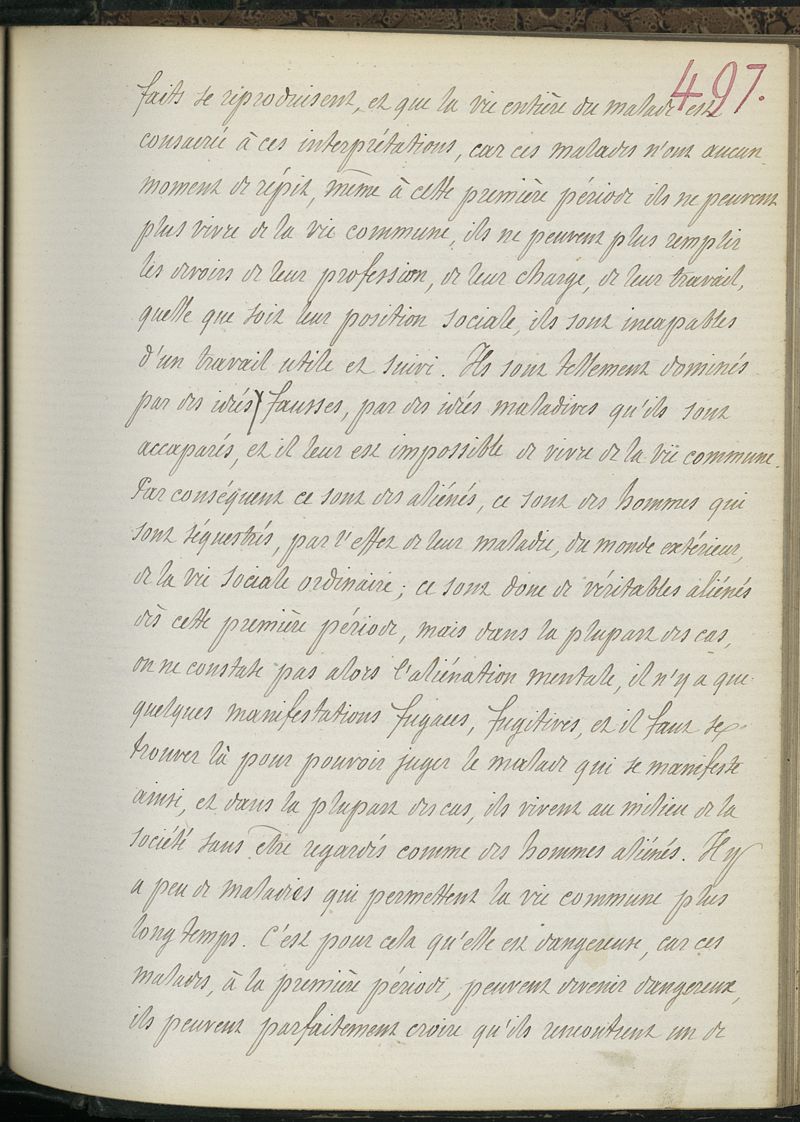 497.
faits se reproduisent, et que la vie entière du malade est
consacrée à ces interprétations, car ces malades n'ont aucun
moment de répit, même à cette première période ils ne peuvent
plus vivre de la vie commune, ils ne peuvent plus remplir
les devoirs de leur profession, de leur charge, de leur travail,
quelle que soit leur position sociale, ils sont incapables
d'un travail utile et suivi. Ils sont tellement dominés
par des idées fausses, par des idées maladives qu'ils sont
accaparés, et il leur est impossible de vivre de la vie commune.
Par conséquent ce sont des aliénés, ce sont des hommes qui
sont séquestrés, par l'effet de leur maladie, du monde extérieur,
de la vie sociale ordinaire ; ce sont donc de véritables aliénés
dès cette première période, mais dans la plupart des cas,
on ne constate pas alors l'aliénation mentale, il n'y a que
quelques manifestations fugaces, fugitives, et il faut se
trouver là pour pouvoir juger le malade qui se manifeste
ainsi, et dans la plupart des cas, ils vivent au milieu de la
société sans être regardés comme des hommes aliénés. Il y
a peu de maladies qui permettent la vie commune plus
long temps. C'est pour cela qu'elle est dangereuse, car ces
malades, à la première période, peuvent devenir dangereux,
ils peuvent parfaitement croire qu'ils rencontrent un de